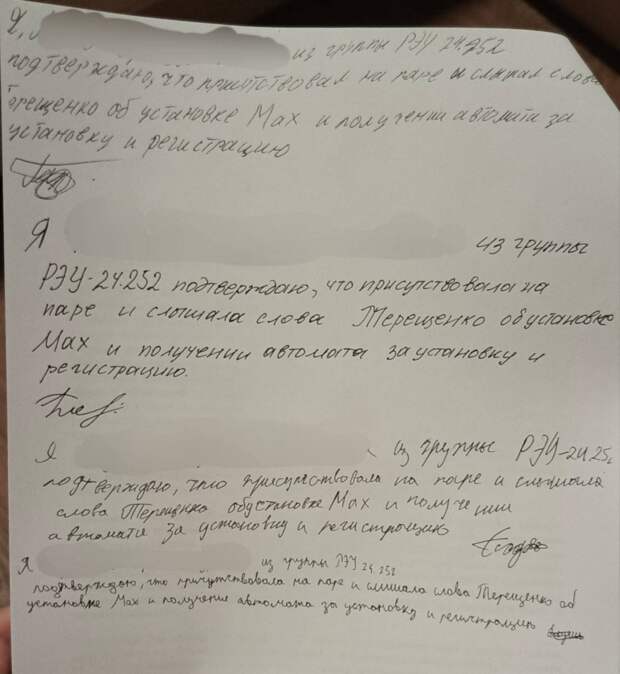 Я,
из группы РЭУ 24.252
подтверждаю, что присутствовал на паре и слышал слова
Терещенко об установке Max и получении автомата за
установку и регистрацию
Я
из группы
РЭУ-24.252 подтверждаю, что присутствовала на
паре и слышала слова Терещенко об установке
Max и получении автомата за установку и
регистрацию.
Я
из группы РЭУ-24.25
подтверждаю, что присуствовала на паре и слышала
слова Терещенко обустановке Max и получении
автомата за установку и регистрацию
Я
из группы РЭУ 24.252
подтверждаю, что присутствовала на паре и слышала слова Терещенко об
установке Max и получение автомата за установку и регистрацию